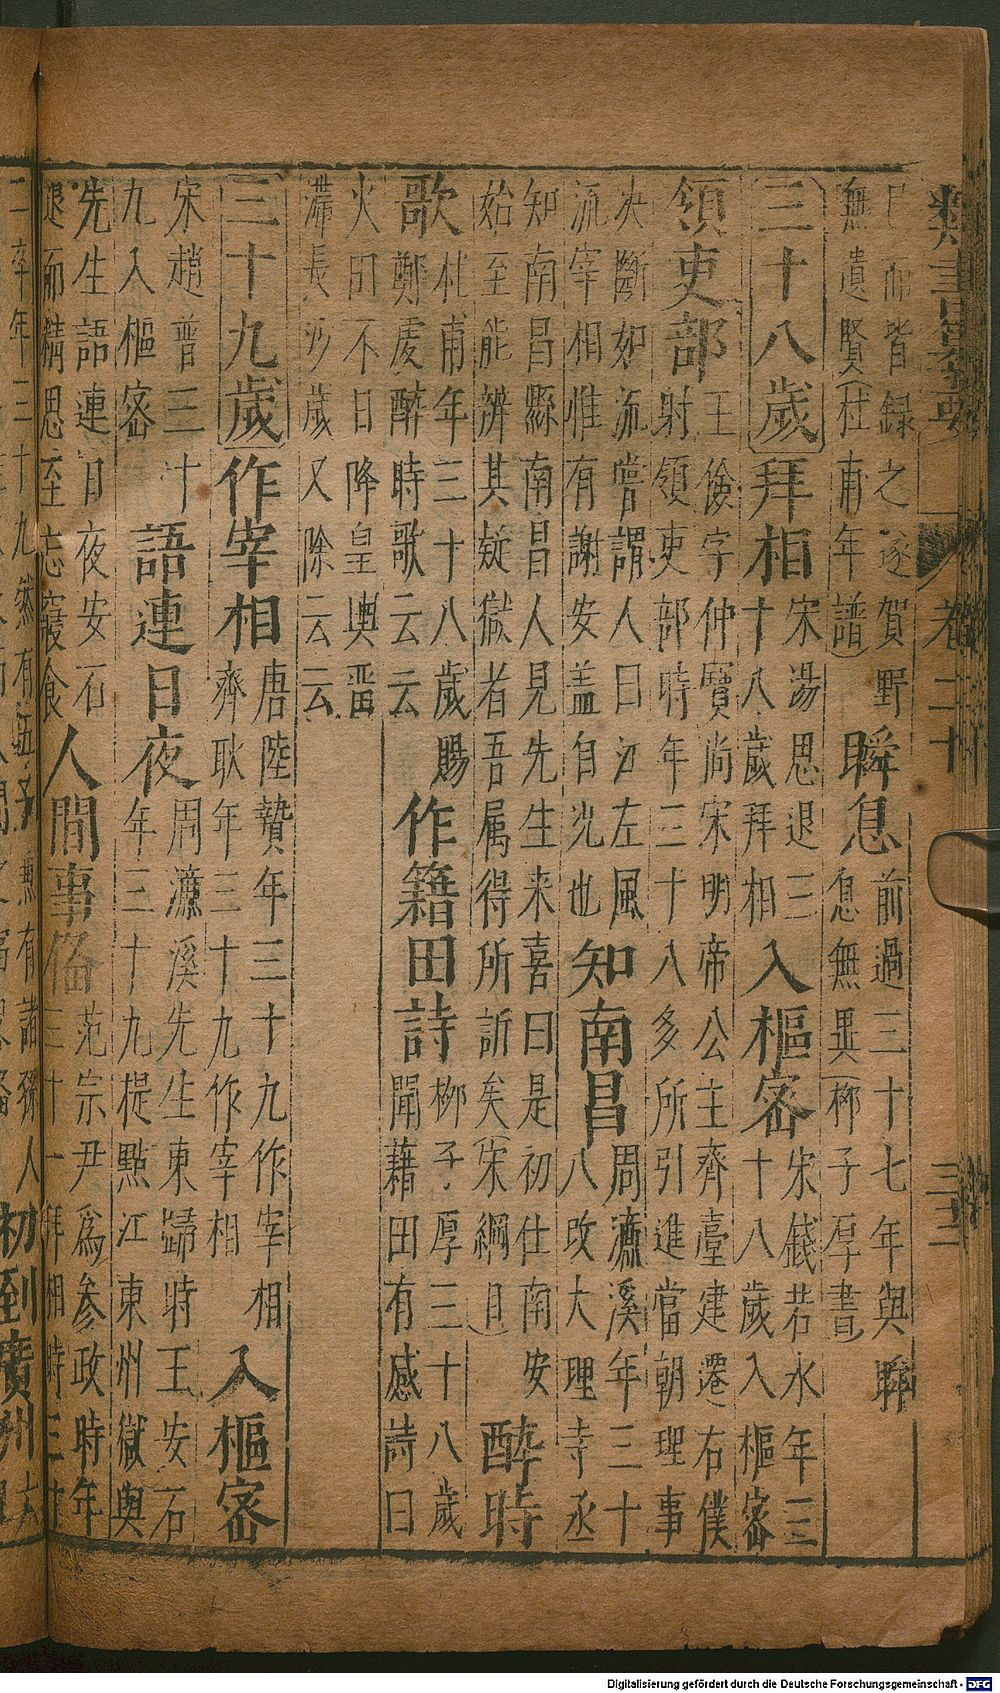 卷二十
已而皆錄之遂賀野
無遺賢(杜甫年譜)
瞬息
前過三十七年與瞬
息無異(柳子厚書)
三十八歲
拜相
宋湯思退三
十八歲拜相
入樞密
宋錢若水年三
十八歲入樞密
領吏部
王儉字仲寶尚宋明帝公主齊臺建遷右僕
射領吏部時年三十八多所引進當朝理事
决斷如流嘗謂人曰江左風
流宰相惟有謝安盖自况也
知南昌
周濂溪年三十
八改大理寺丞
知南昌縣南昌人見先生来喜曰是初仕南安
始至能辨其疑獄者吾属得所訴矣(宋綱目)
醉時
歌
杜甫年三十八歲賜
鄭虔醉時歌云云
作籍田詩
柳子厚三十八歲
聞藉田有感詩曰
火田不日降皇輿畱
滯長沙歲又除云云
三十九歲
作宰相
唐陸贄年三十九作宰相
齊耿年三十九作宰相
入樞密
宋趙普三十
九入樞密
語連日夜
周濂溪先生東歸時王安石
年三十九提點江東州獄與
先生語連日夜安石
退而精思至忘寢食
人間事俻
范宗尹為参政時年
三十一拜相時三十
初到廣州
Digitalisierung gefördert durch die Deutsche Forschungsgemeinschaft - DFG